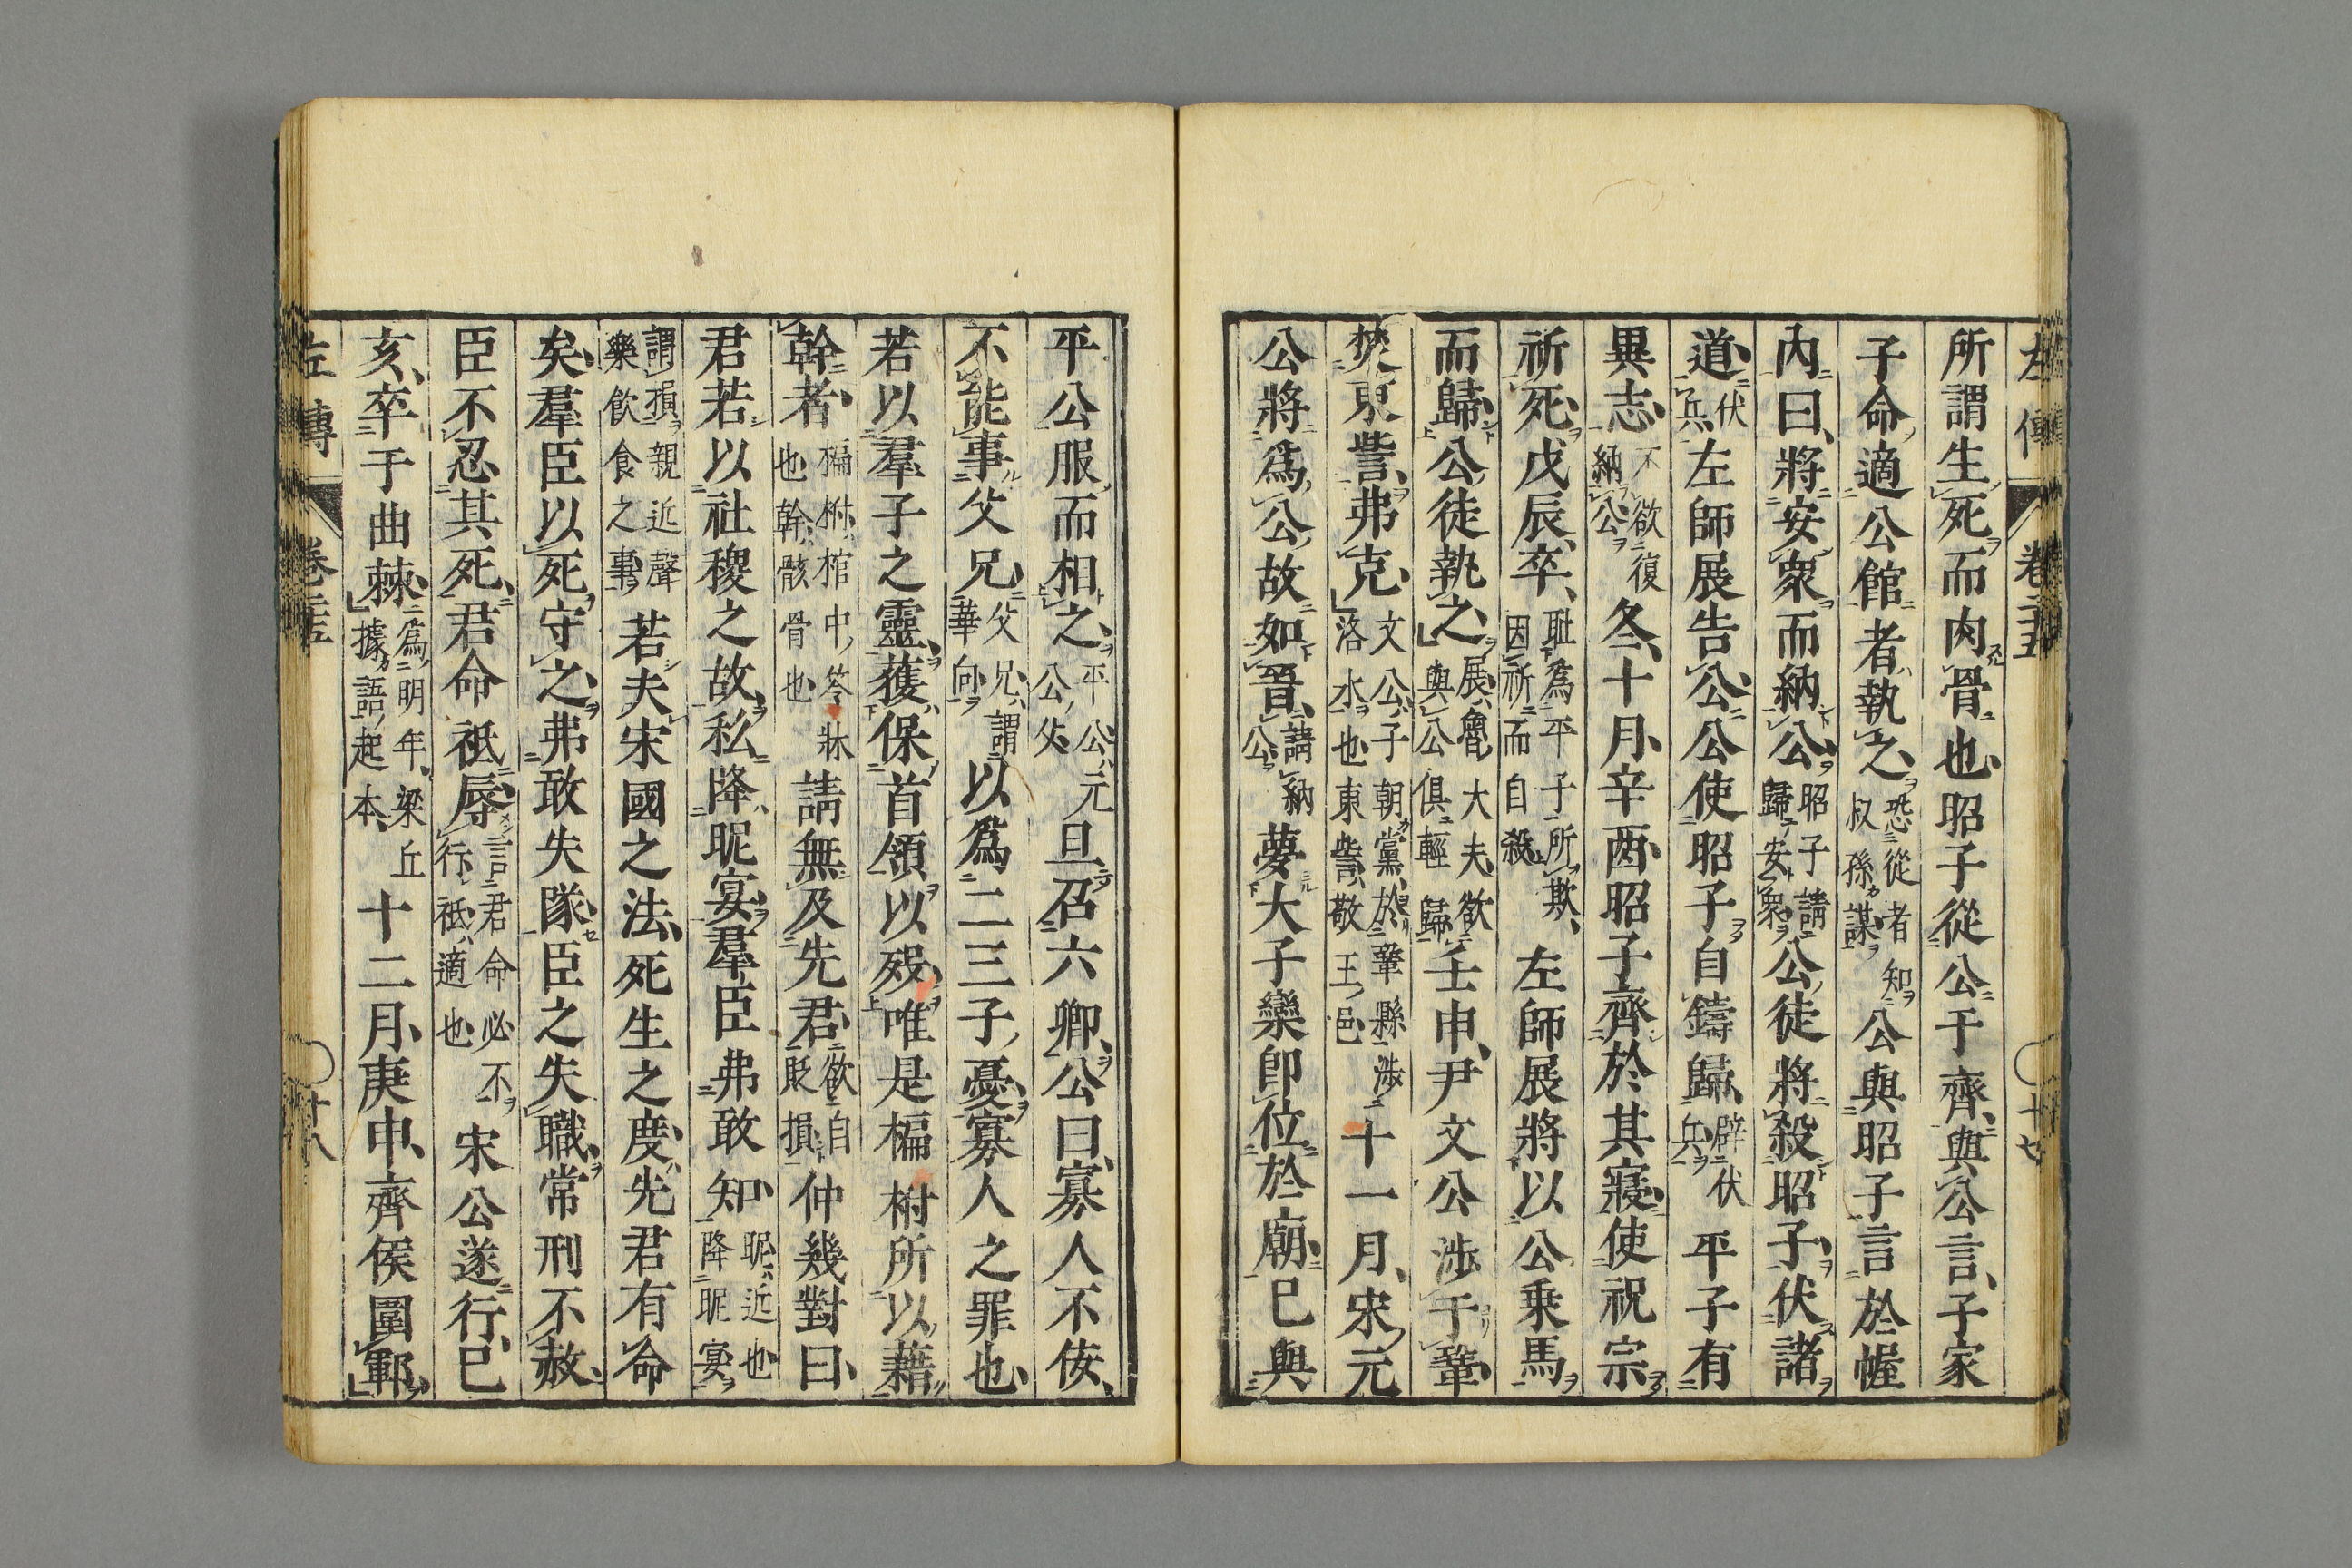 左傳 卷二十五 十七
所謂生死而肉骨也昭子從公于齊與公言子家
子命適公館者執之恐從者知叔孫謀公與昭子言於幄
內曰將安衆而納公昭子請歸安衆公徒將殺昭子伏諸
道伏兵左師展告公公使昭子自鑄歸辟伏兵平子有
異志不欲復納公冬十月辛酉昭子齊於其寢使祝宗
祈死戊辰卒耻爲平子所欺因祈而自殺左師展將以公乗馬
而歸公徒執之展魯大夫欲與公俱輕歸壬申尹文公涉于鞏
焚東訾弗克文公子朝黨於鞏縣涉洛水也東訾敬王邑十一月宋元
公將爲公故如晉請納公夢大子欒卽位於廟已與
平公服而相之平公元公父旦召六卿公曰寡人不佞
不能事父兄父兄謂華向以爲二三子憂寡人之罪也
若以羣子之靈獲保首領以歿唯是楄柎所以藉
幹者楄柎棺中笭牀也幹骸骨也請無及先君欲自貶損仲幾對曰
君若以社稷之故私降昵宴羣臣弗敢知昵近也降昵宴
謂損親近聲樂飮食之事若夫宋國之法死生之度先君有命
矣羣臣以死守之弗敢失隊臣之失職常刑不赦
臣不忍其死君命祗辱言君命必不行祗適也宋公遂行已
亥卒于曲棘爲明年梁丘據語起本十二月庚申齊侯圍鄆
左傳 卷二十五 十八